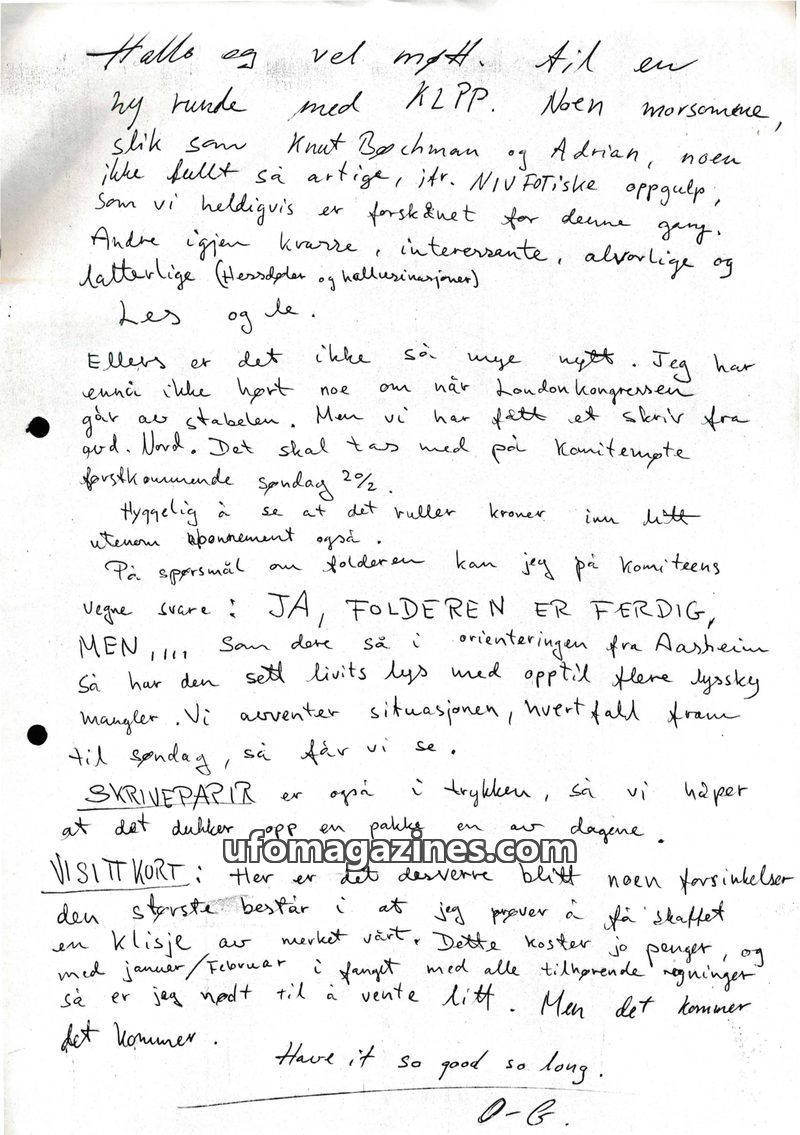 Hallo og vel møtt. til en
ny runde med KLPP. Noen morsomme,
slik som Knut Bøchman og Adrian, noen
ikke fullt så artige, jfr. NIVFOTiske oppgulp,
som vi heldigvis er forskånet for denne gang.
Andre igjen krasse, interessante, alvorlige og
latterlige (Hessdøler og hallusinasjoner)
Les og le.
Ellers er det ikke så mye nytt. Jeg har
ennå ikke hørt noe om når Londonkongressen
går av stabelen. Men vi har fått et skriv fra
avd. Nord. Det skal tas med på komitemøte
førstkommende søndag 20/2.
Hyggelig å se at det ruller kroner inn litt
utenom abonnement også.
På spørsmål om folderen kan jeg på komiteens
vegne svare: JA, FOLDEREN ER FERDIG,
MEN,,,, Som dere så i orienteringen fra Aasheim
så har den sett livits lys med opptil flere lyssky
mangler. Vi avventer situasjonen, hvertfall fram
til søndag, så får vi se.
SKRIVEPAPIR er også i trykken, så vi håper
at det dukker opp en pakke en av dagene.
ufomagazines.com
VISITTKORT: Her er det desverre blitt noen forsinkelser
den største består i at jeg prøver å få skaffet
en klisje av merket vårt. Dette koster jo penger, og
med januar/Februar i fanget med alle tilhørende regninger
så er jeg nødt til å vente litt. Men det kommer
det kommer.
Have it so good so long.
O-G.